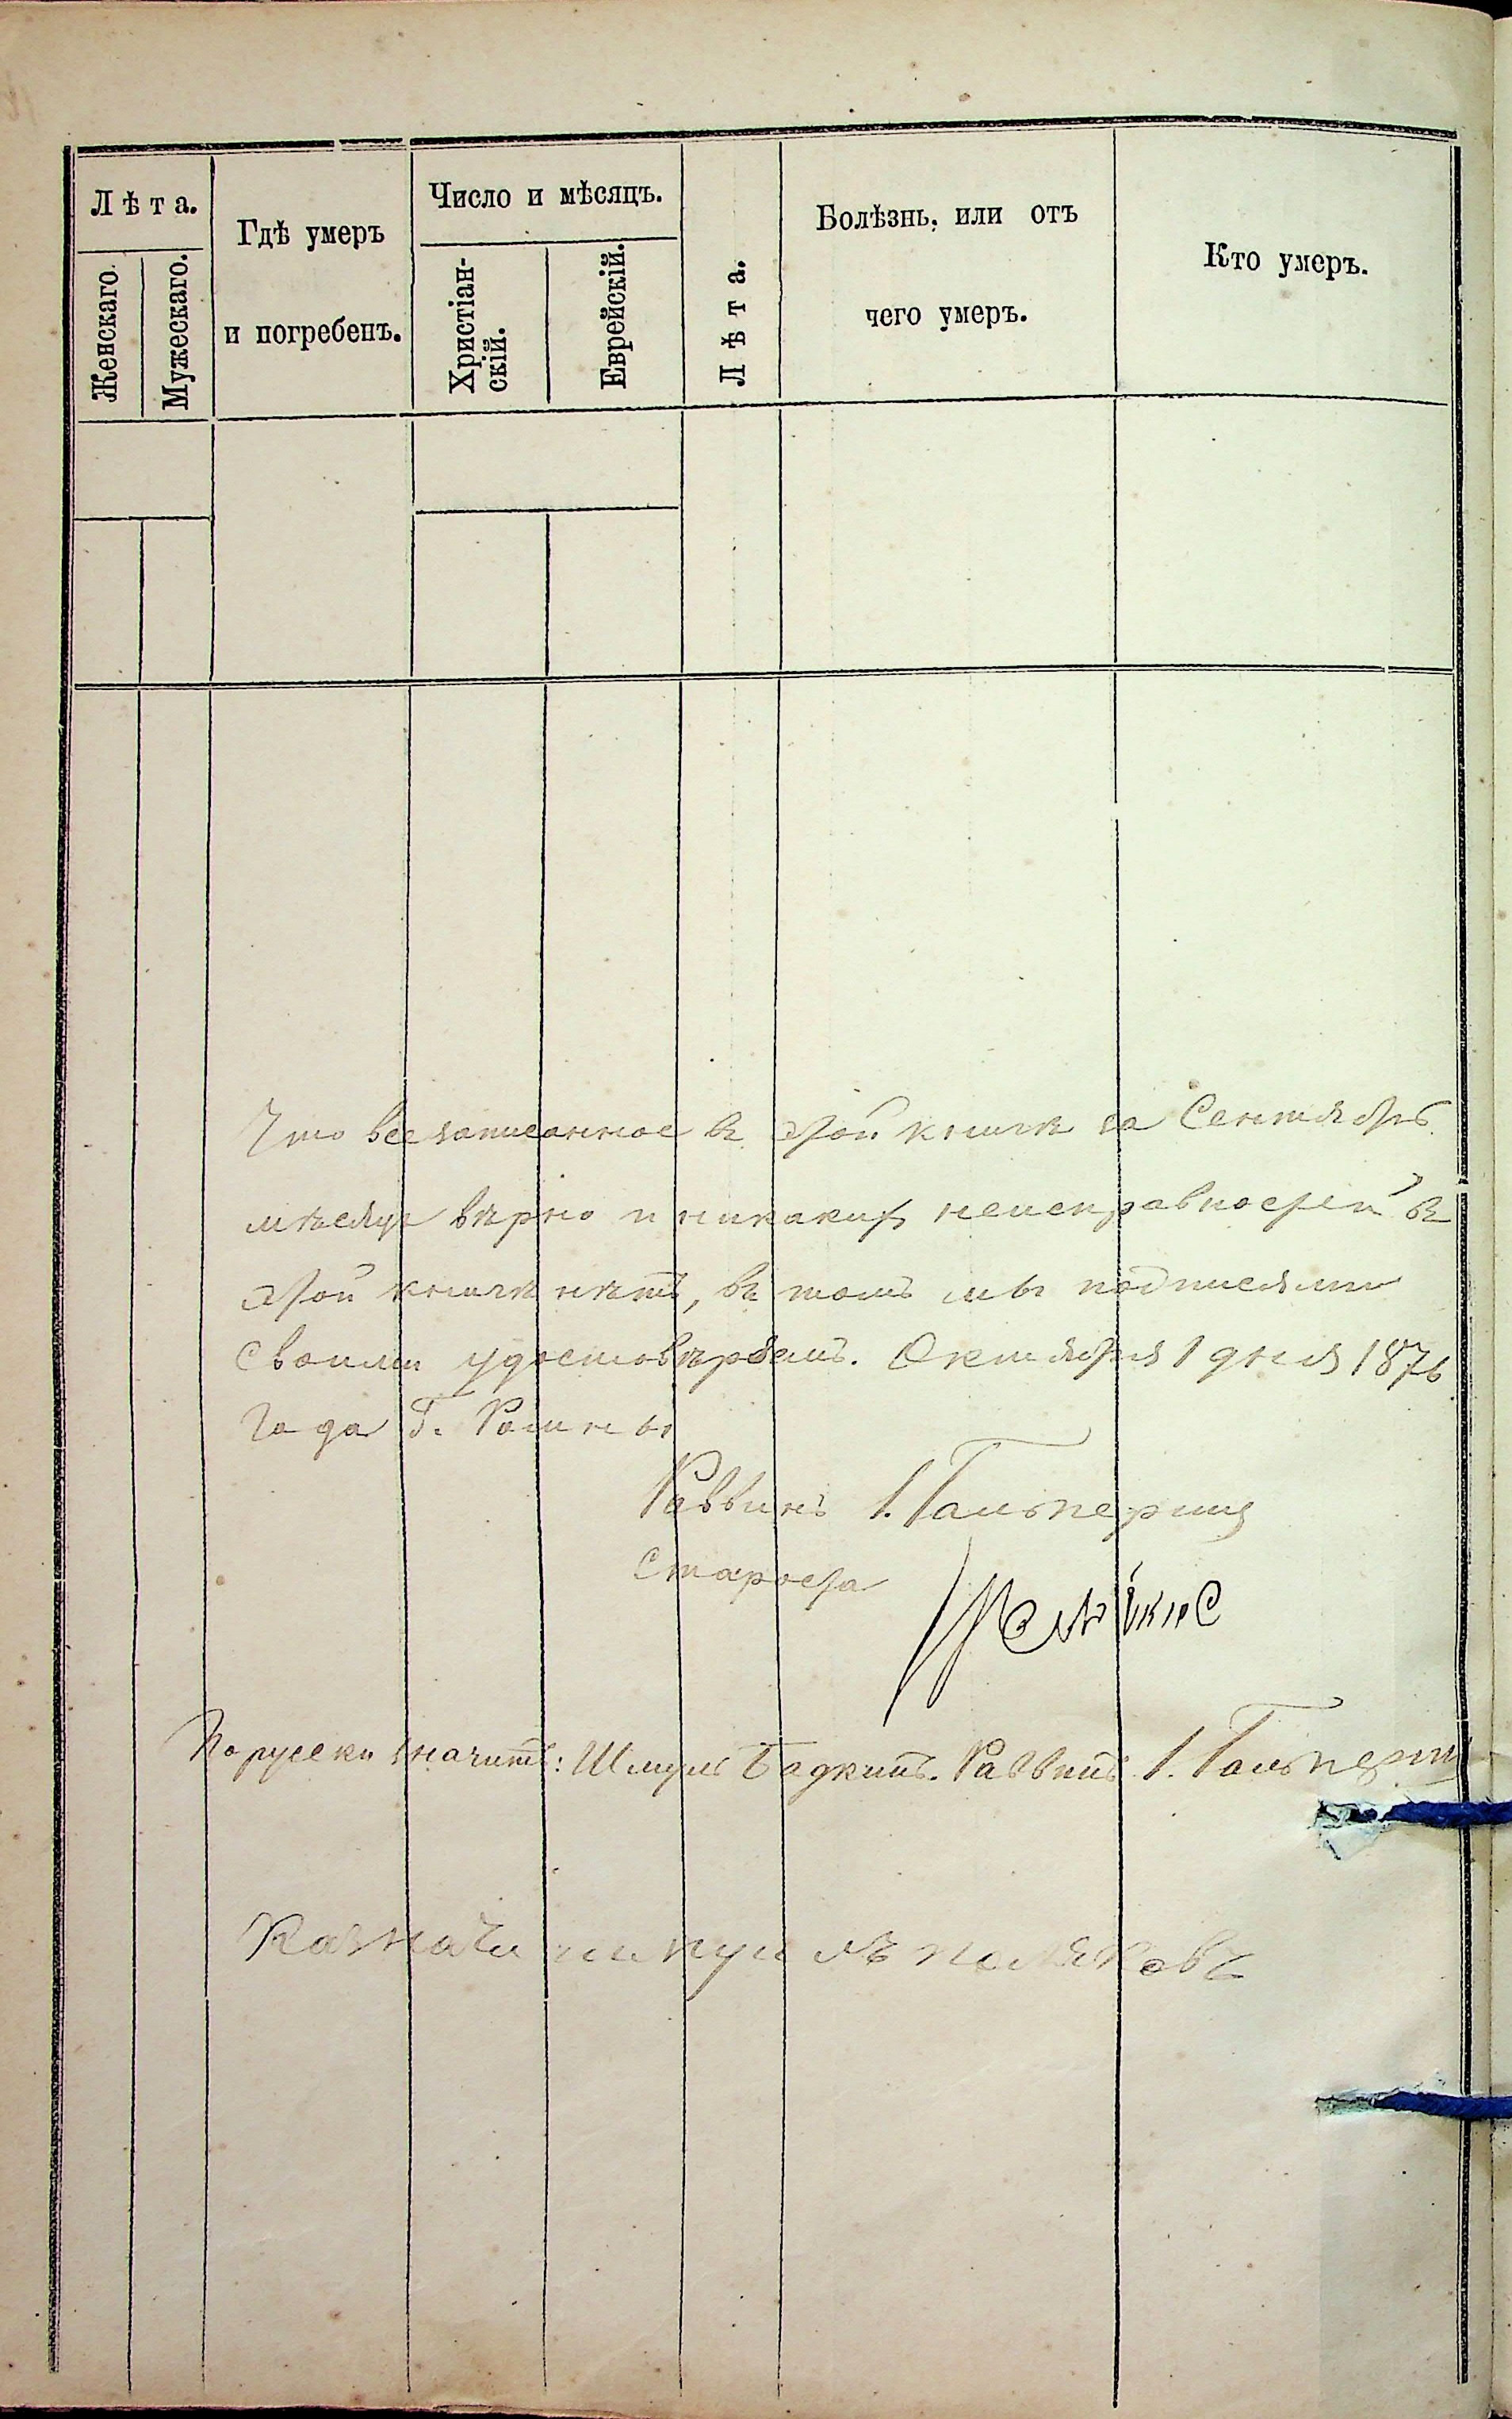 Лѣта.
Женскаго.
Мужескаго.
Гдѣ умеръ
и погребенъ.
Число и мѣсяцъ.
Христіан-
скій.
Еврейскій.
Лѣта.
Болѣзнь, или отъ
чего умеръ.
Кто умеръ.
Что все записанное въ этой книгѣ за Сентябрь
мѣсяцъ вѣрно и никакихъ неисправностей въ
этой книгѣ нѣтъ, въ томъ мы подписями
своими удостовѣряемъ. Октября 1 дня 1876
года Г. Ромны
Раввинъ І. Гальперинъ
Староста
По русски значитъ: Шмуль Бадкинъ. Раввинъ І. Гальперинъ
Казначи поляковъ